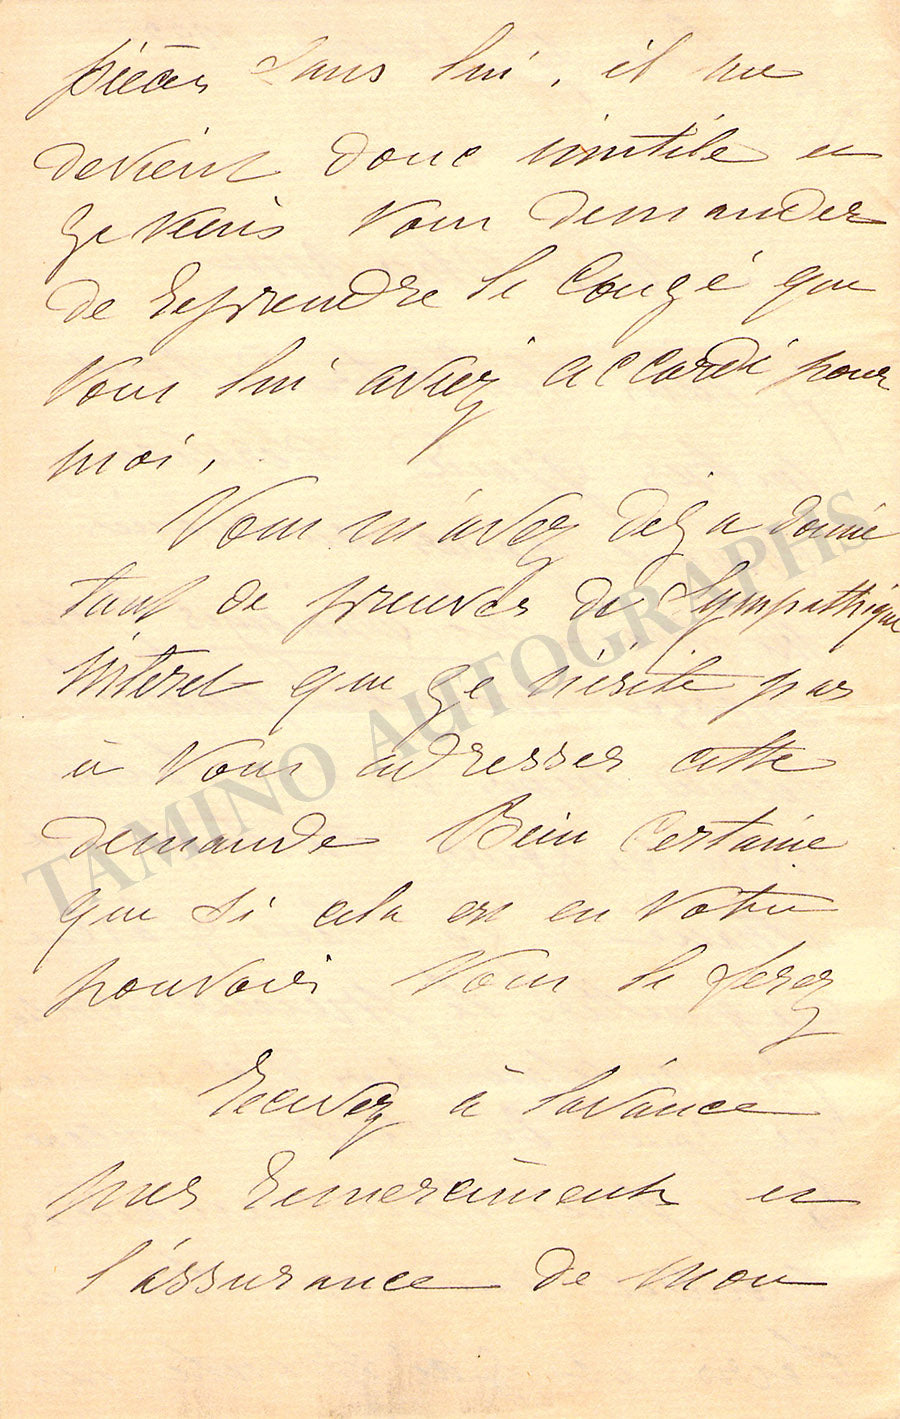 pièces sans lui, il me
devient donc inutile et
je viens vous demander
de reprendre le congé que
vous lui aviez accordé pour
moi.
Vous m'avez déja donné
tant de preuves de sympathique
intéret que je n'ésite pas
à vous adresser cette
demande Bien certaine
que si cela est en votre
pouvoir vous le ferez
Recevez à l'avance
mes remerciments et
l'assurance de mon
TAMINO AUTOGRAPHS